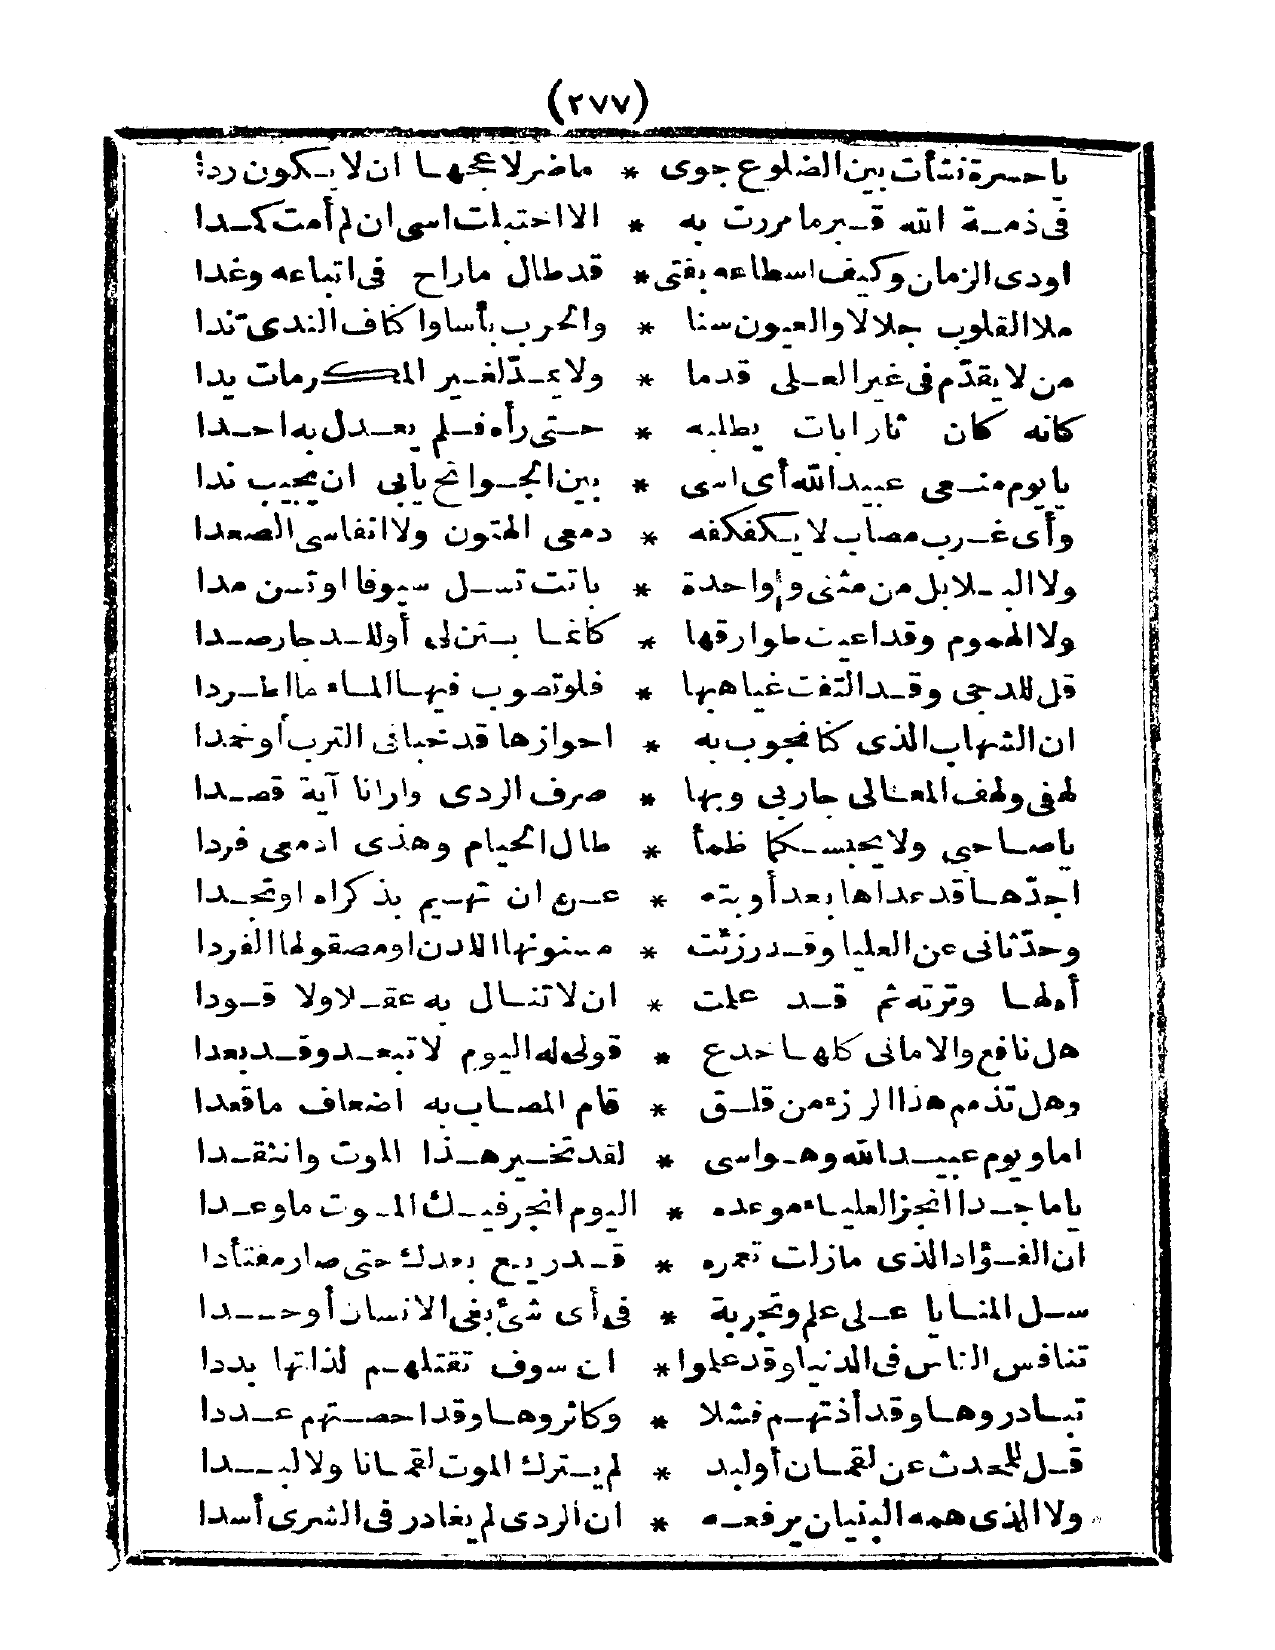 (٢٧٧)
ياحسرة نشأت بين الضلوع جوى * ماضر لاعجها ان لا يكون ردا
فى ذمة الله قبر ما مررت به * الا اختبلت اسى ان لم أمت كمدا
اودى الزمان وكيف اسطاعه بفتى * قد طال ماراح فى اتباعه وغدا
ملا القلوب جلالا والعيون سنا * والحرب بأسا واكناف الندى ندا
من لا يقدّم فى غير العلى قدما * ولا يمدّ لغير المكرمات يدا
كانه كان ثارا بات يطلبه * حتى رأه فلم يعدل به احدا
يايوم منعى عبيد الله أى اسى * بين الجوانح يابى ان يجيب ندا
وأى غرب مصاب لا يكفكفه * دمعى الهتون ولا انفاسى الصعدا
ولا البلابل من مثنى وواحدة * باتت تسل سيوفا او تسن مدا
ولا الهموم وقد اعيت طوارقها * كانما بتن لى أو للدجا رصدا
قل للدجى وقد التفت غياهبها * فلو تصوب فيها الماء ما اطردا
ان الشهاب الذى كنا نجوب به * احوازها قد خبا فى الترب أو خمدا
لهفى ولهف المعالى جار بى وبها * صرف الردى وارانا آية قصدا
ياصاحبى ولا يحبسكما ظمأ * طال الحيام وهذى ادمعى فردا
اجدّها قد عداها بعد أوبته * عن ان تهيم بذكراه او تجدا
وحدّثانى عن العليا وقد رزئت * مسنونها اللدن او مصقولها الفردا
أم لها وترته ثم قد علمت * ان لا تنال به عقلا ولا قودا
هل نافع والامانى كلها خدع * قولى له اليوم لا تبعد وقد بعدا
وهل تذمم هذا الرزء من قلق * قام المصاب به اضعاف ما قعدا
اما ويوم عبيد الله وهو اسى * لقد تخير هذا الموت وانتقدا
ياماجدا انجز العلياء موعده * اليوم انجز فيك الموت ما وعدا
ان الفؤاد الذى مازلت تعمره * قد ريع بعدك حتى صار مفتأدا
سل المنايا على علم وتجربة * فى أى شئ بغى الانسان أو حسدا
تنافس الناس فى الدنيا وقد علموا * ان سوف تقتلهم لذاتها بددا
تبادروها وقد أذتهم فشلا * وكاثروها وقد احصتهم عددا
قل للمحدث عن لقمان أولبد * لم يترك الموت لقمانا ولا لبدا
ولا الذى همه البنيان يرفعه * ان الردى لم يغادر فى الشرى أسدا